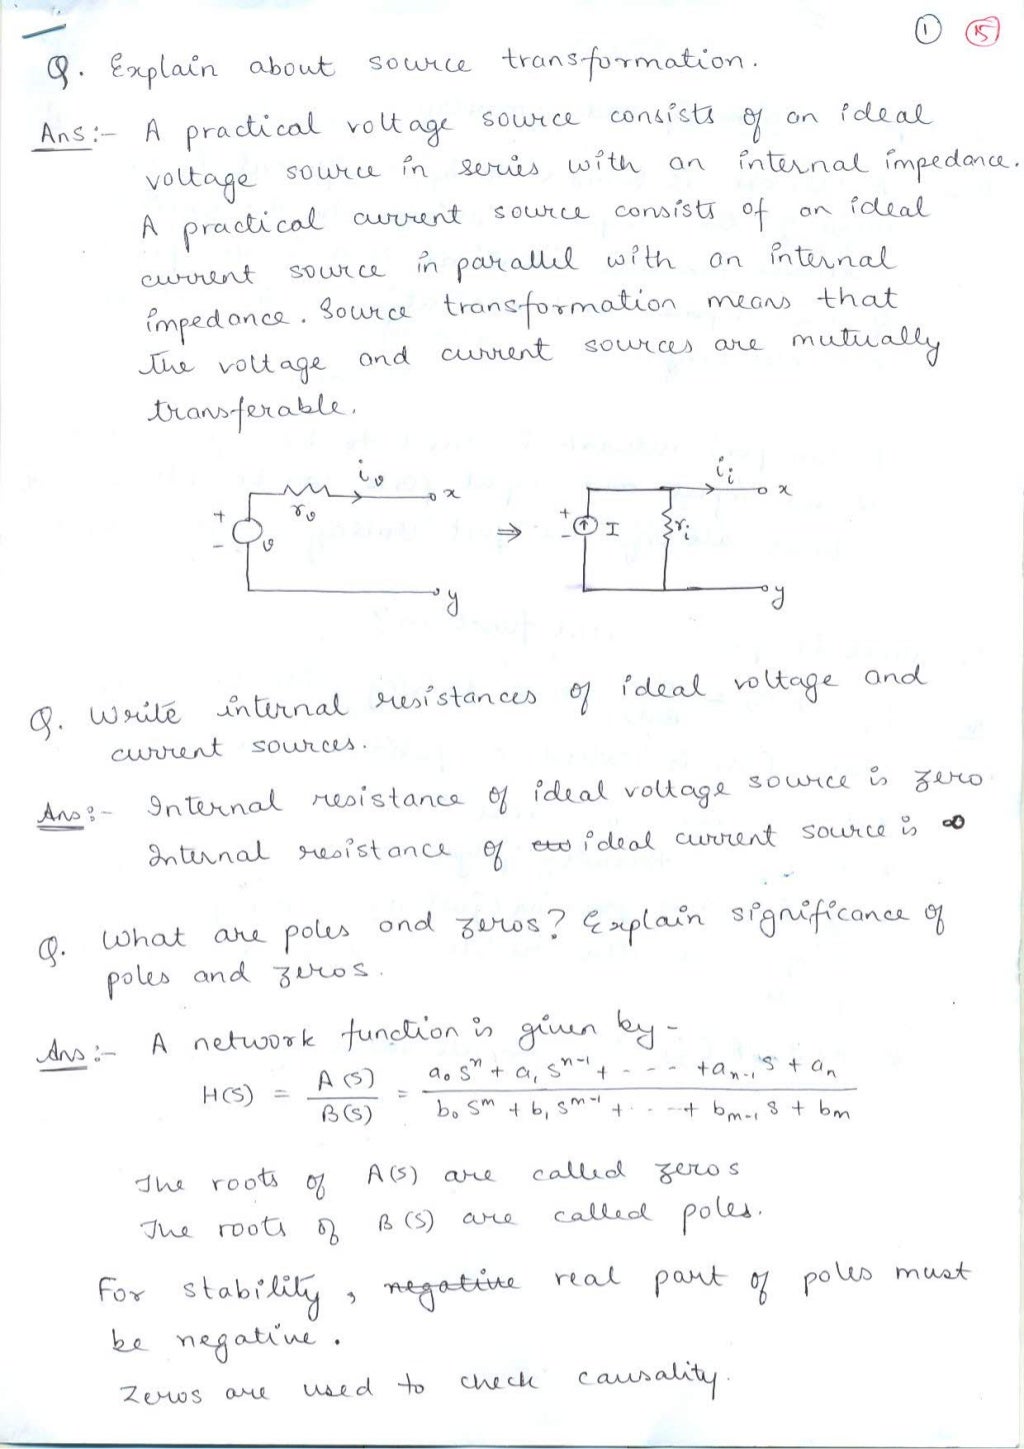 1 15
Q. Explain about source transformation.
Ans:- A practical voltage source consists of an ideal
voltage source in series with an internal impedance.
A practical current source consists of an ideal
current source in parallel with an internal
impedance. Source transformation means that
the voltage and current sources are mutually
transferable.
+ - v r_v i_v x y ⇒ + - I r_i i_i x y
Q. Write internal resistances of ideal voltage and
current sources.
Ans:- Internal resistance of ideal voltage source is zero
Internal resistance of ideal current source is ∞
Q. What are poles and zeros? Explain significance of
poles and zeros.
Ans:- A network function is given by -
H(S) = A(S)/B(S) = (a₀ sⁿ + a₁ sⁿ⁻¹ + - - - + aₙ₋₁ s + aₙ)/(b₀ sᵐ + b₁ sᵐ⁻¹ + - - - + bₘ₋₁ s + bₘ)
The roots of A(S) are called zeros
The roots of B(S) are called poles.
For stability, negative real part of poles must
be negative.
Zeros are used to check causality.